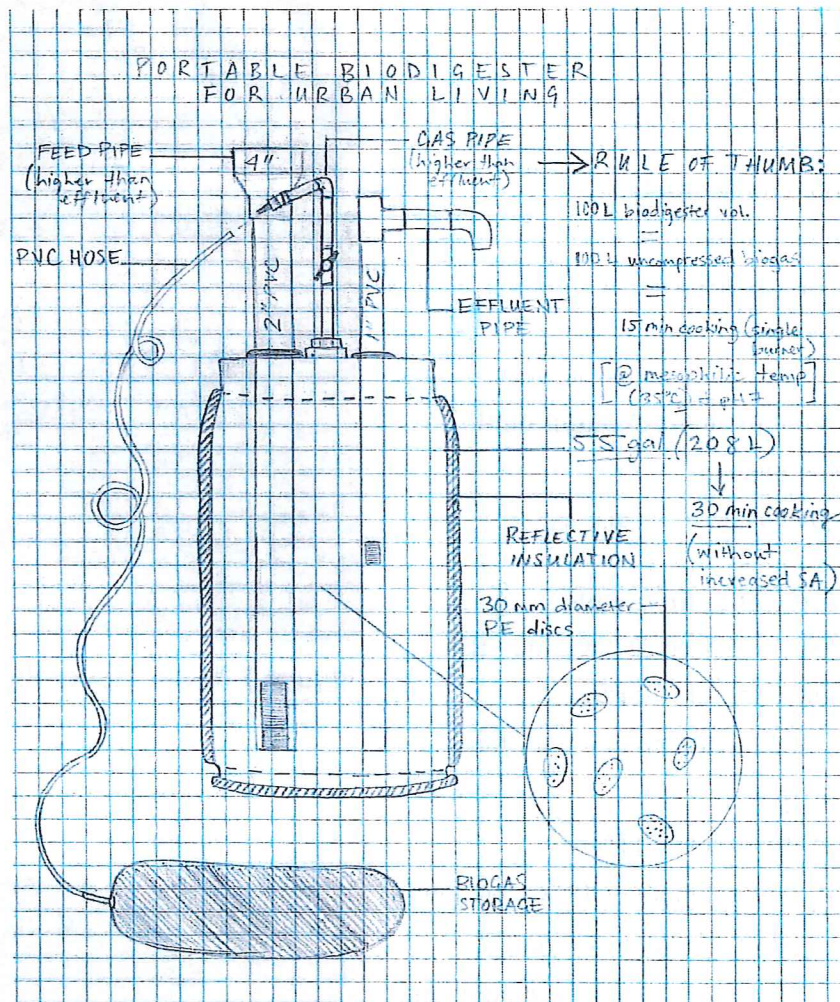 PORTABLE BIODIGESTER
FOR URBAN LIVING
FEED PIPE
(higher than
effluent)
4"
GAS PIPE
(higher than
effluent)
RULE OF THUMB:
100L biodigester vol.
=
100L uncompressed biogas
=
15 min cooking (single
burner)
[@ mesophilic temp
(35°C) + pH 7]
PVC HOSE
2" PVC
1" PVC
EFFLUENT
PIPE
55 gal (208 L)
30 min cooking
(without
increased SA)
REFLECTIVE
INSULATION
30 mm diameter
PE discs
BIOGAS
STORAGE